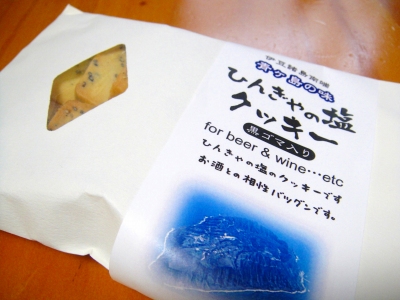 伊豆諸島南端
青ヶ島の味
ひんぎゃの塩
クッキー
黒ゴマ入り
for beer & wine…etc
ひんぎゃの塩のクッキーです
お酒との相性バツグンです。